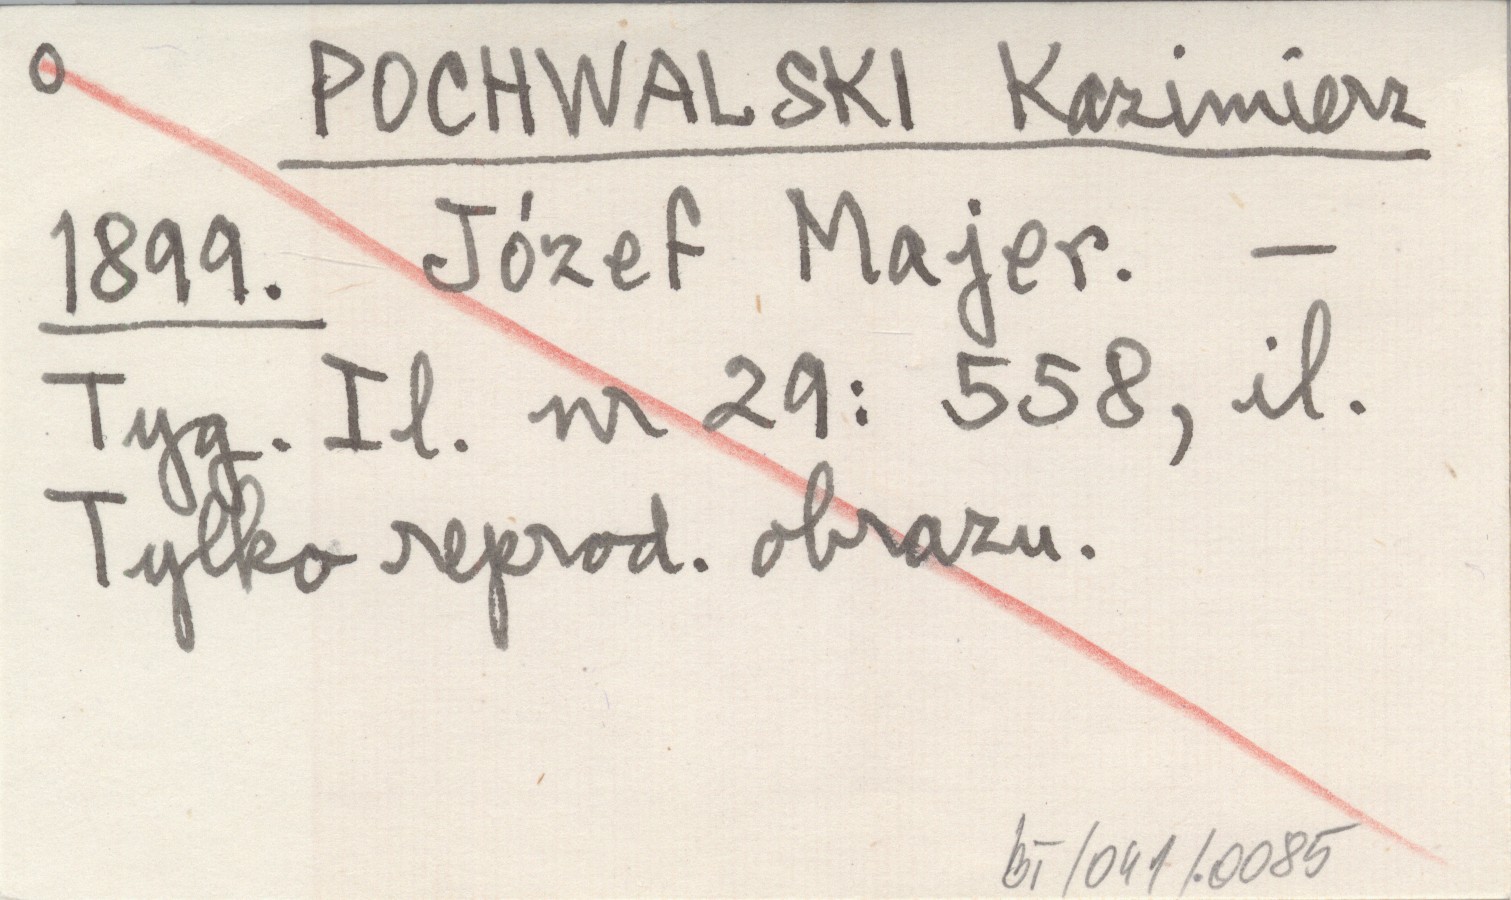 O POCHWALSKI Kazimierz
1899. Józef Majer. —
Tyg. Il. nr 29: 558, il.
Tylko reprod. obrazu.
bI/041/.0085